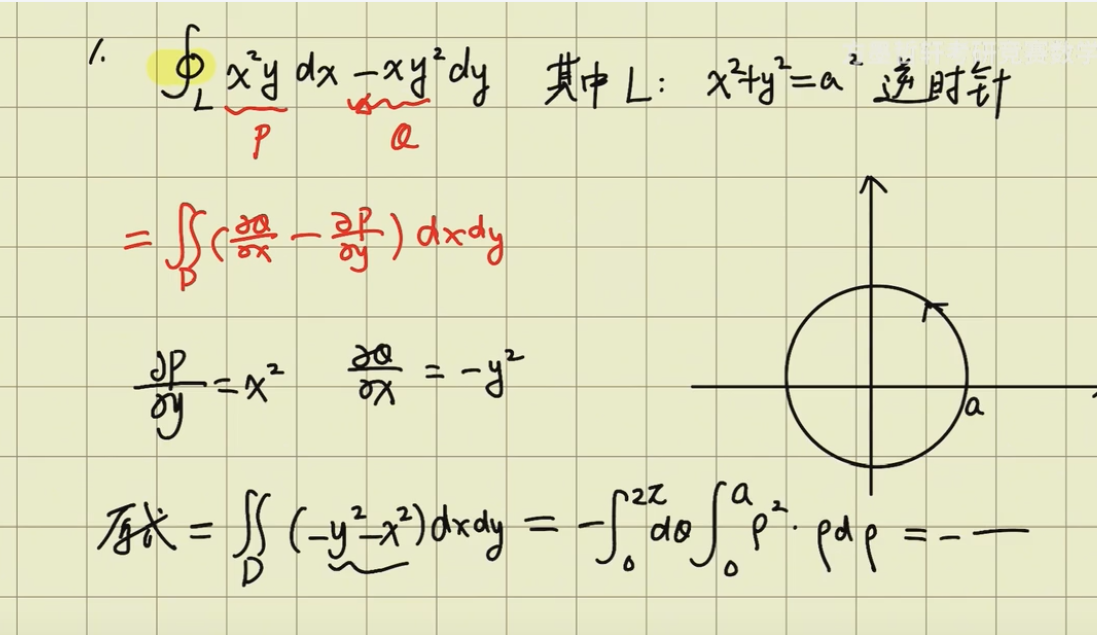 1. ∮_L x²y dx - xy² dy 其中 L: x²+y²=a² 逆时针
P Q
= ∬_D (∂Q/∂x - ∂P/∂y) dxdy
∂P/∂y = x² ∂Q/∂x = -y²
a
原式 = ∬_D (-y²-x²) dxdy = -∫₀^{2π} dθ ∫₀^a ρ²·ρdρ = - —